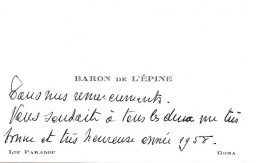 BARON DE L'ÉPINE
Tous mes remerciements.
Vous souhaite à tous les deux une très
bonne et très heureuse année 1958.
LOU PARADOU
GHOA